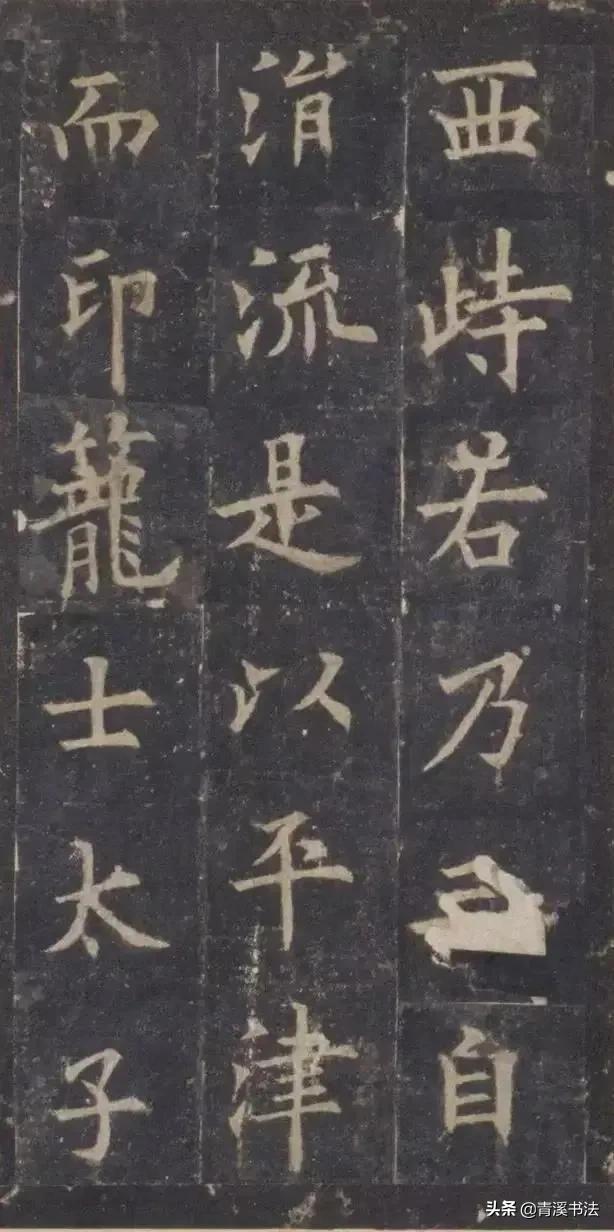 西峙若乃自
涓流是以平津
而印籠士太子
头条 @青溪书法